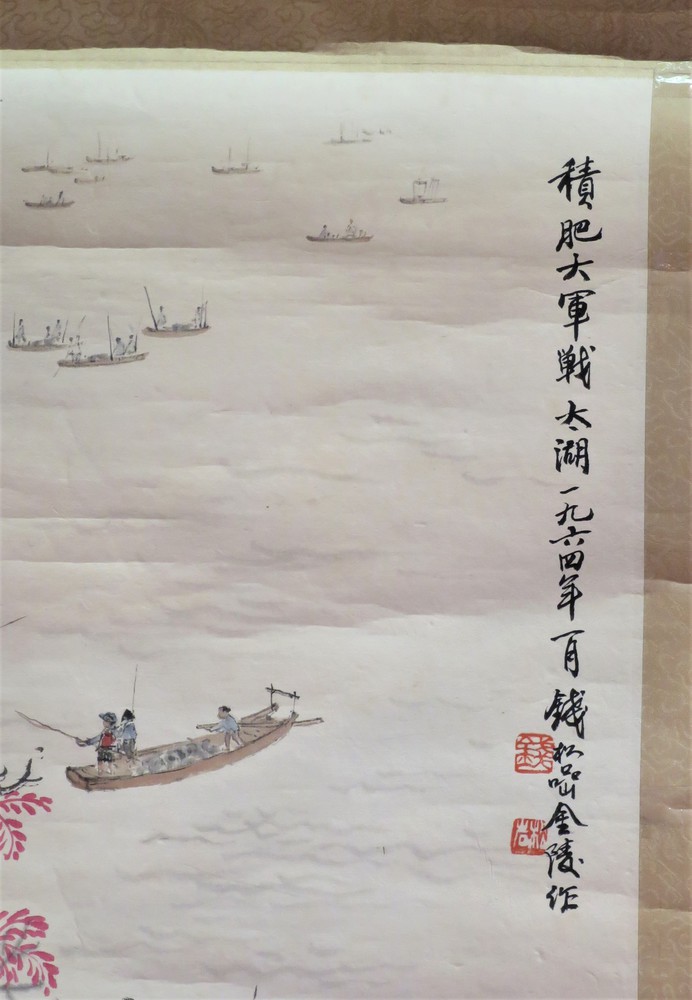 積肥大軍戦太湖一九六四年一月錢松喦金陵作
錢
松岩